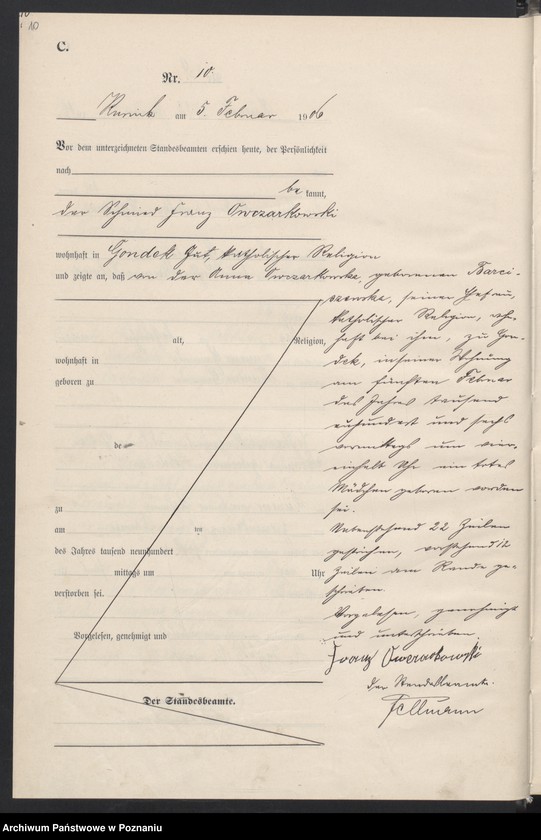 10
C.
Nr. 10.
Kurnik am 5. Februar 1906
Vor dem unterzeichneten Standesbeamten erschien heute, der Persönlichkeit
nach
be kannt,
der Schmied Franz Owczarkowski
wohnhaft in Gondek Gut, katholischer Religion
und zeigte an, daß von der Anna Owczarkowska, geborenen Barci-
szewska, seiner Ehefrau,
katholischer Religion, wohn-
haft bei ihm, zu Gon-
dek, in seiner Wohnung
am fünften Februar
des Jahres tausend
neunhundert und sechs
vormittags um
einhalb Uhr ein totes
Mädchen geboren worden
sei.
Nebenstehend 22 Zeilen
gestrichen, vorstehend 12
Zeilen am Rande ge-
schrieben.
Vorgelesen, genehmigt
und unterschrieben.
Franz Owczarkowski
Der Standesbeamte.
Fellmann
alt, Religion,
wohnhaft in
geboren zu
de
zu
am um
des Jahres tausend neunhundert
mittags um Uhr
verstorben sei.
Vorgelesen, genehmigt und
Der Standesbeamte.
Archiwum Państwowe w Poznaniu